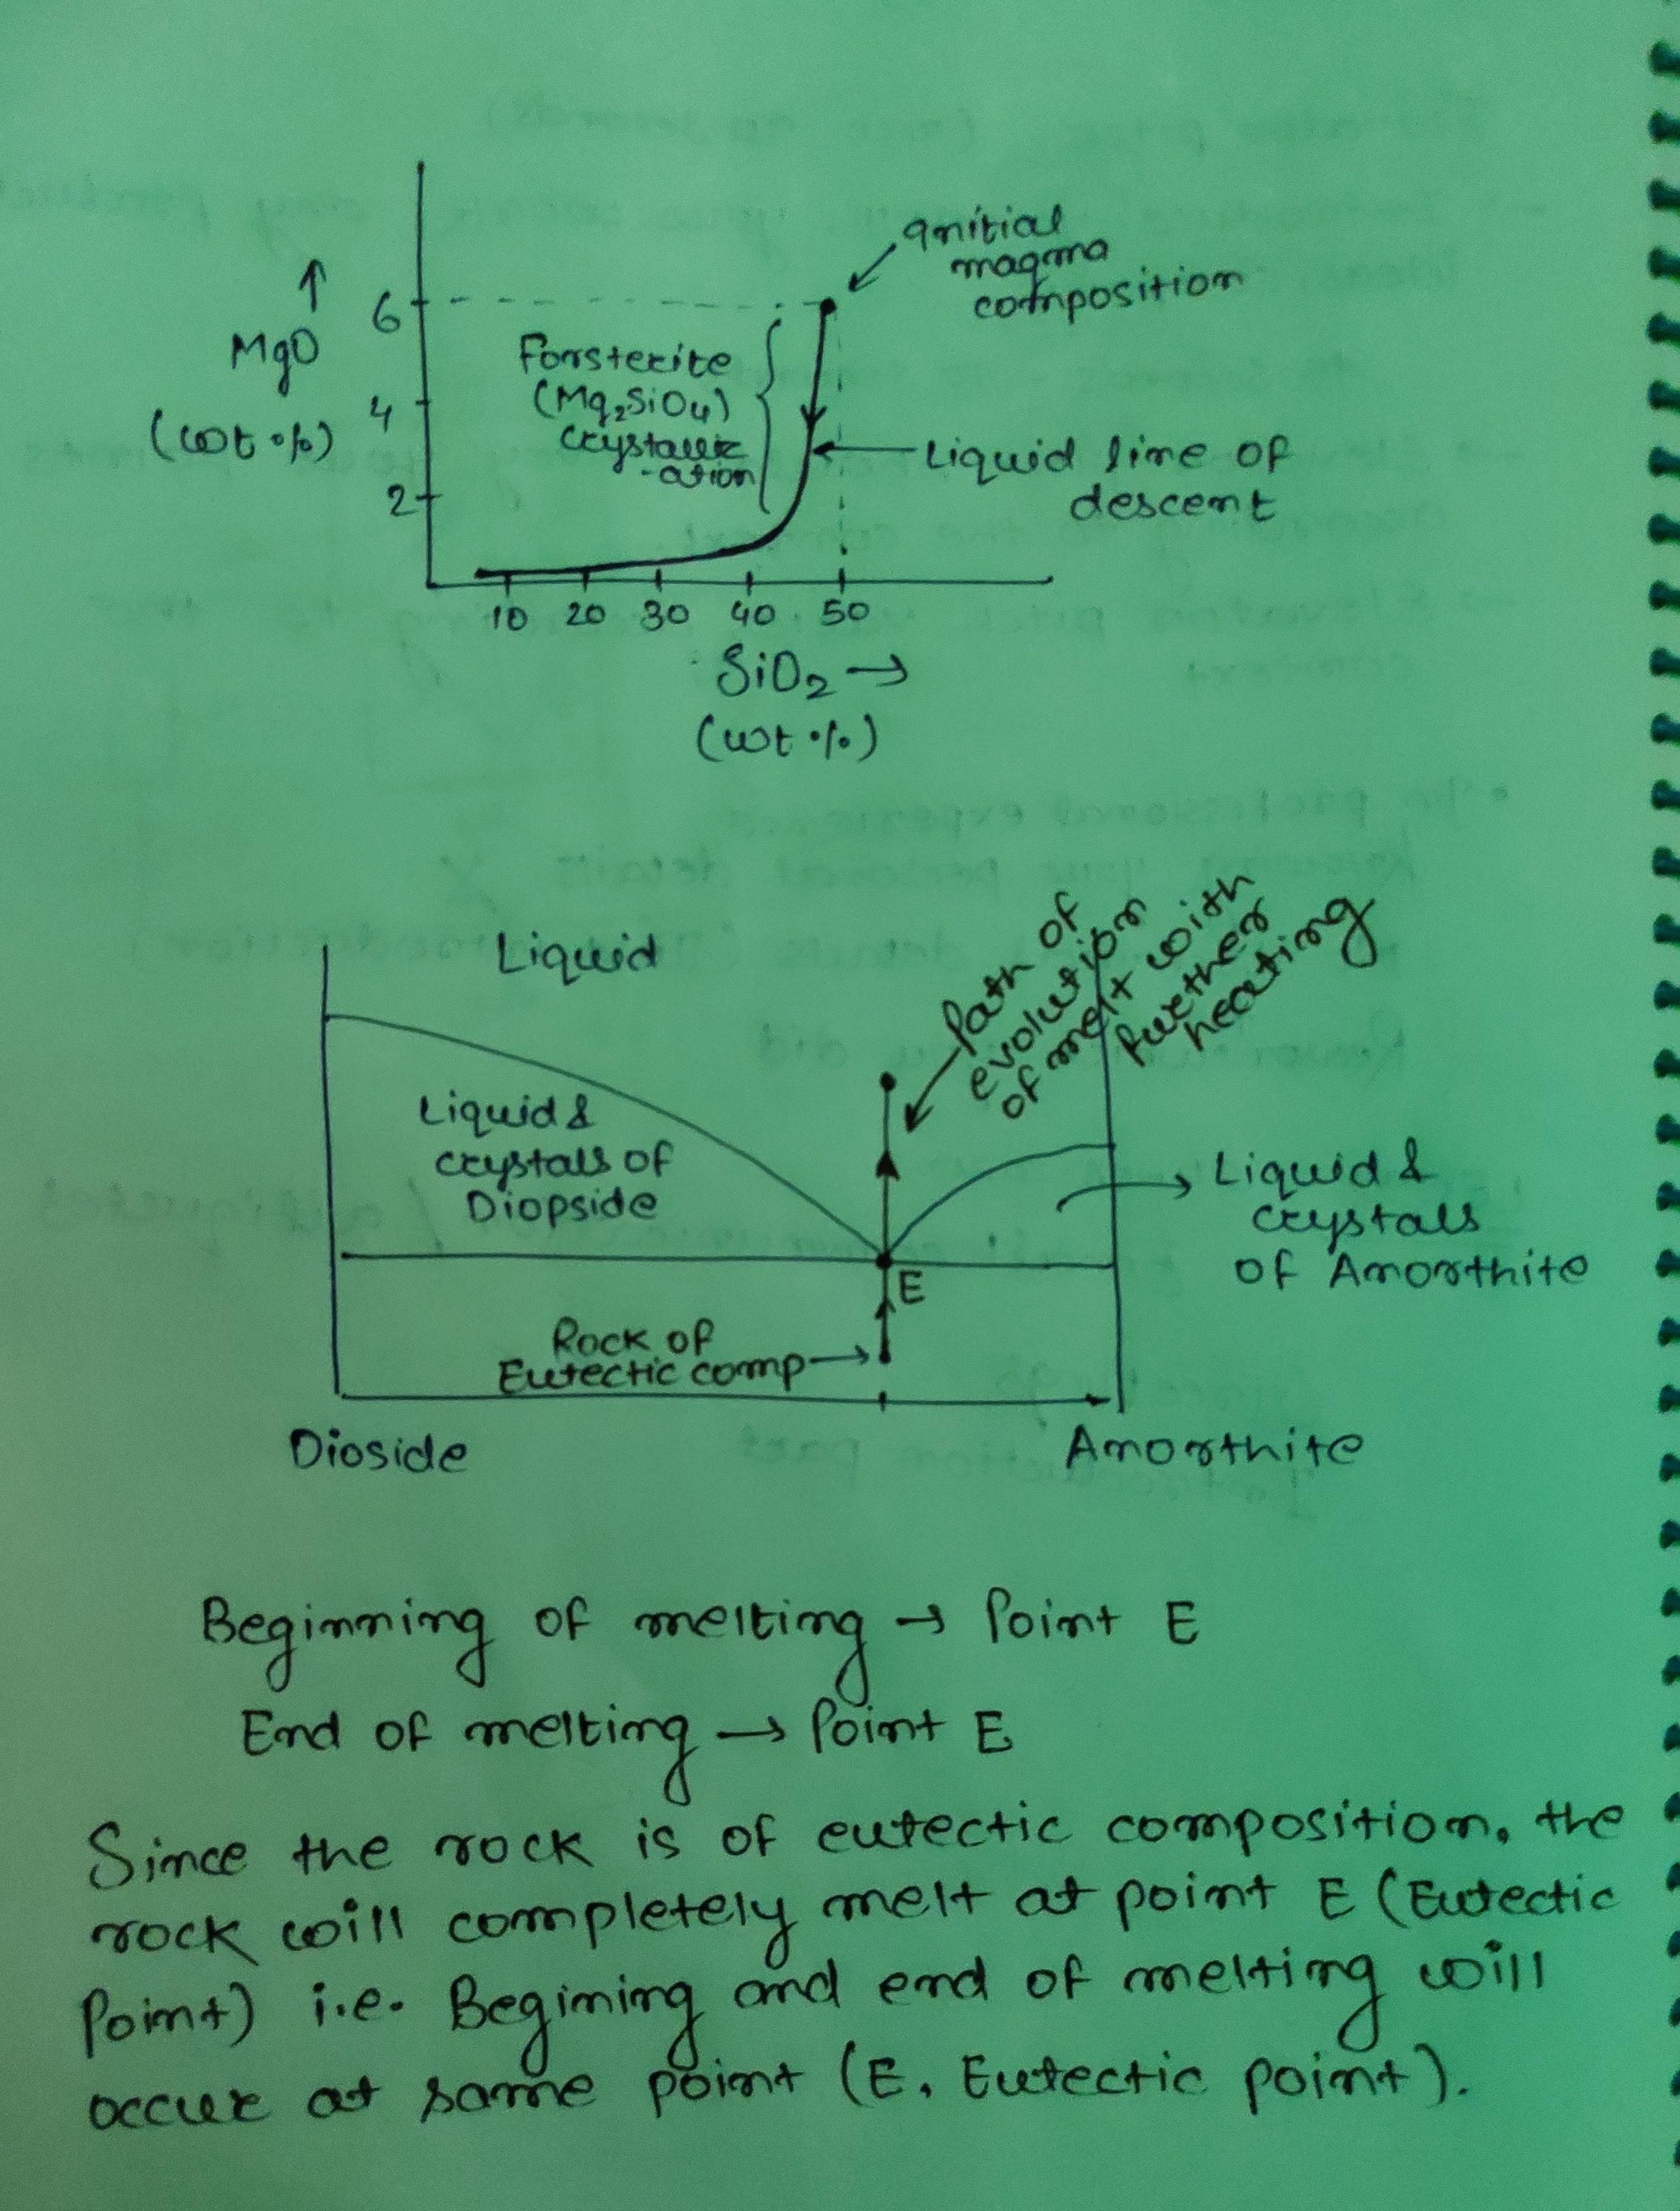 Initial
magma
composition
↑
6
MgO
Forsterite
4
(Mg₂SiO₄)
(wt %)
crystalliz
-ation
Liquid line of
descent
2
10 20 30 40 50
SiO₂ →
(wt %)
Path of
evolution
of melt with
further
heating
Liquid
Liquid &
crystals of
Diopside
Liquid &
crystals
of Anorthite
E
Rock of
Eutectic comp
Dioside
Anorthite
Beginning of melting → Point E
End of melting → Point E
Since the rock is of eutectic composition, the
rock will completely melt at point E (Eutectic
Point) i.e. Begining and end of melting will
occur at same point (E, Eutectic point).